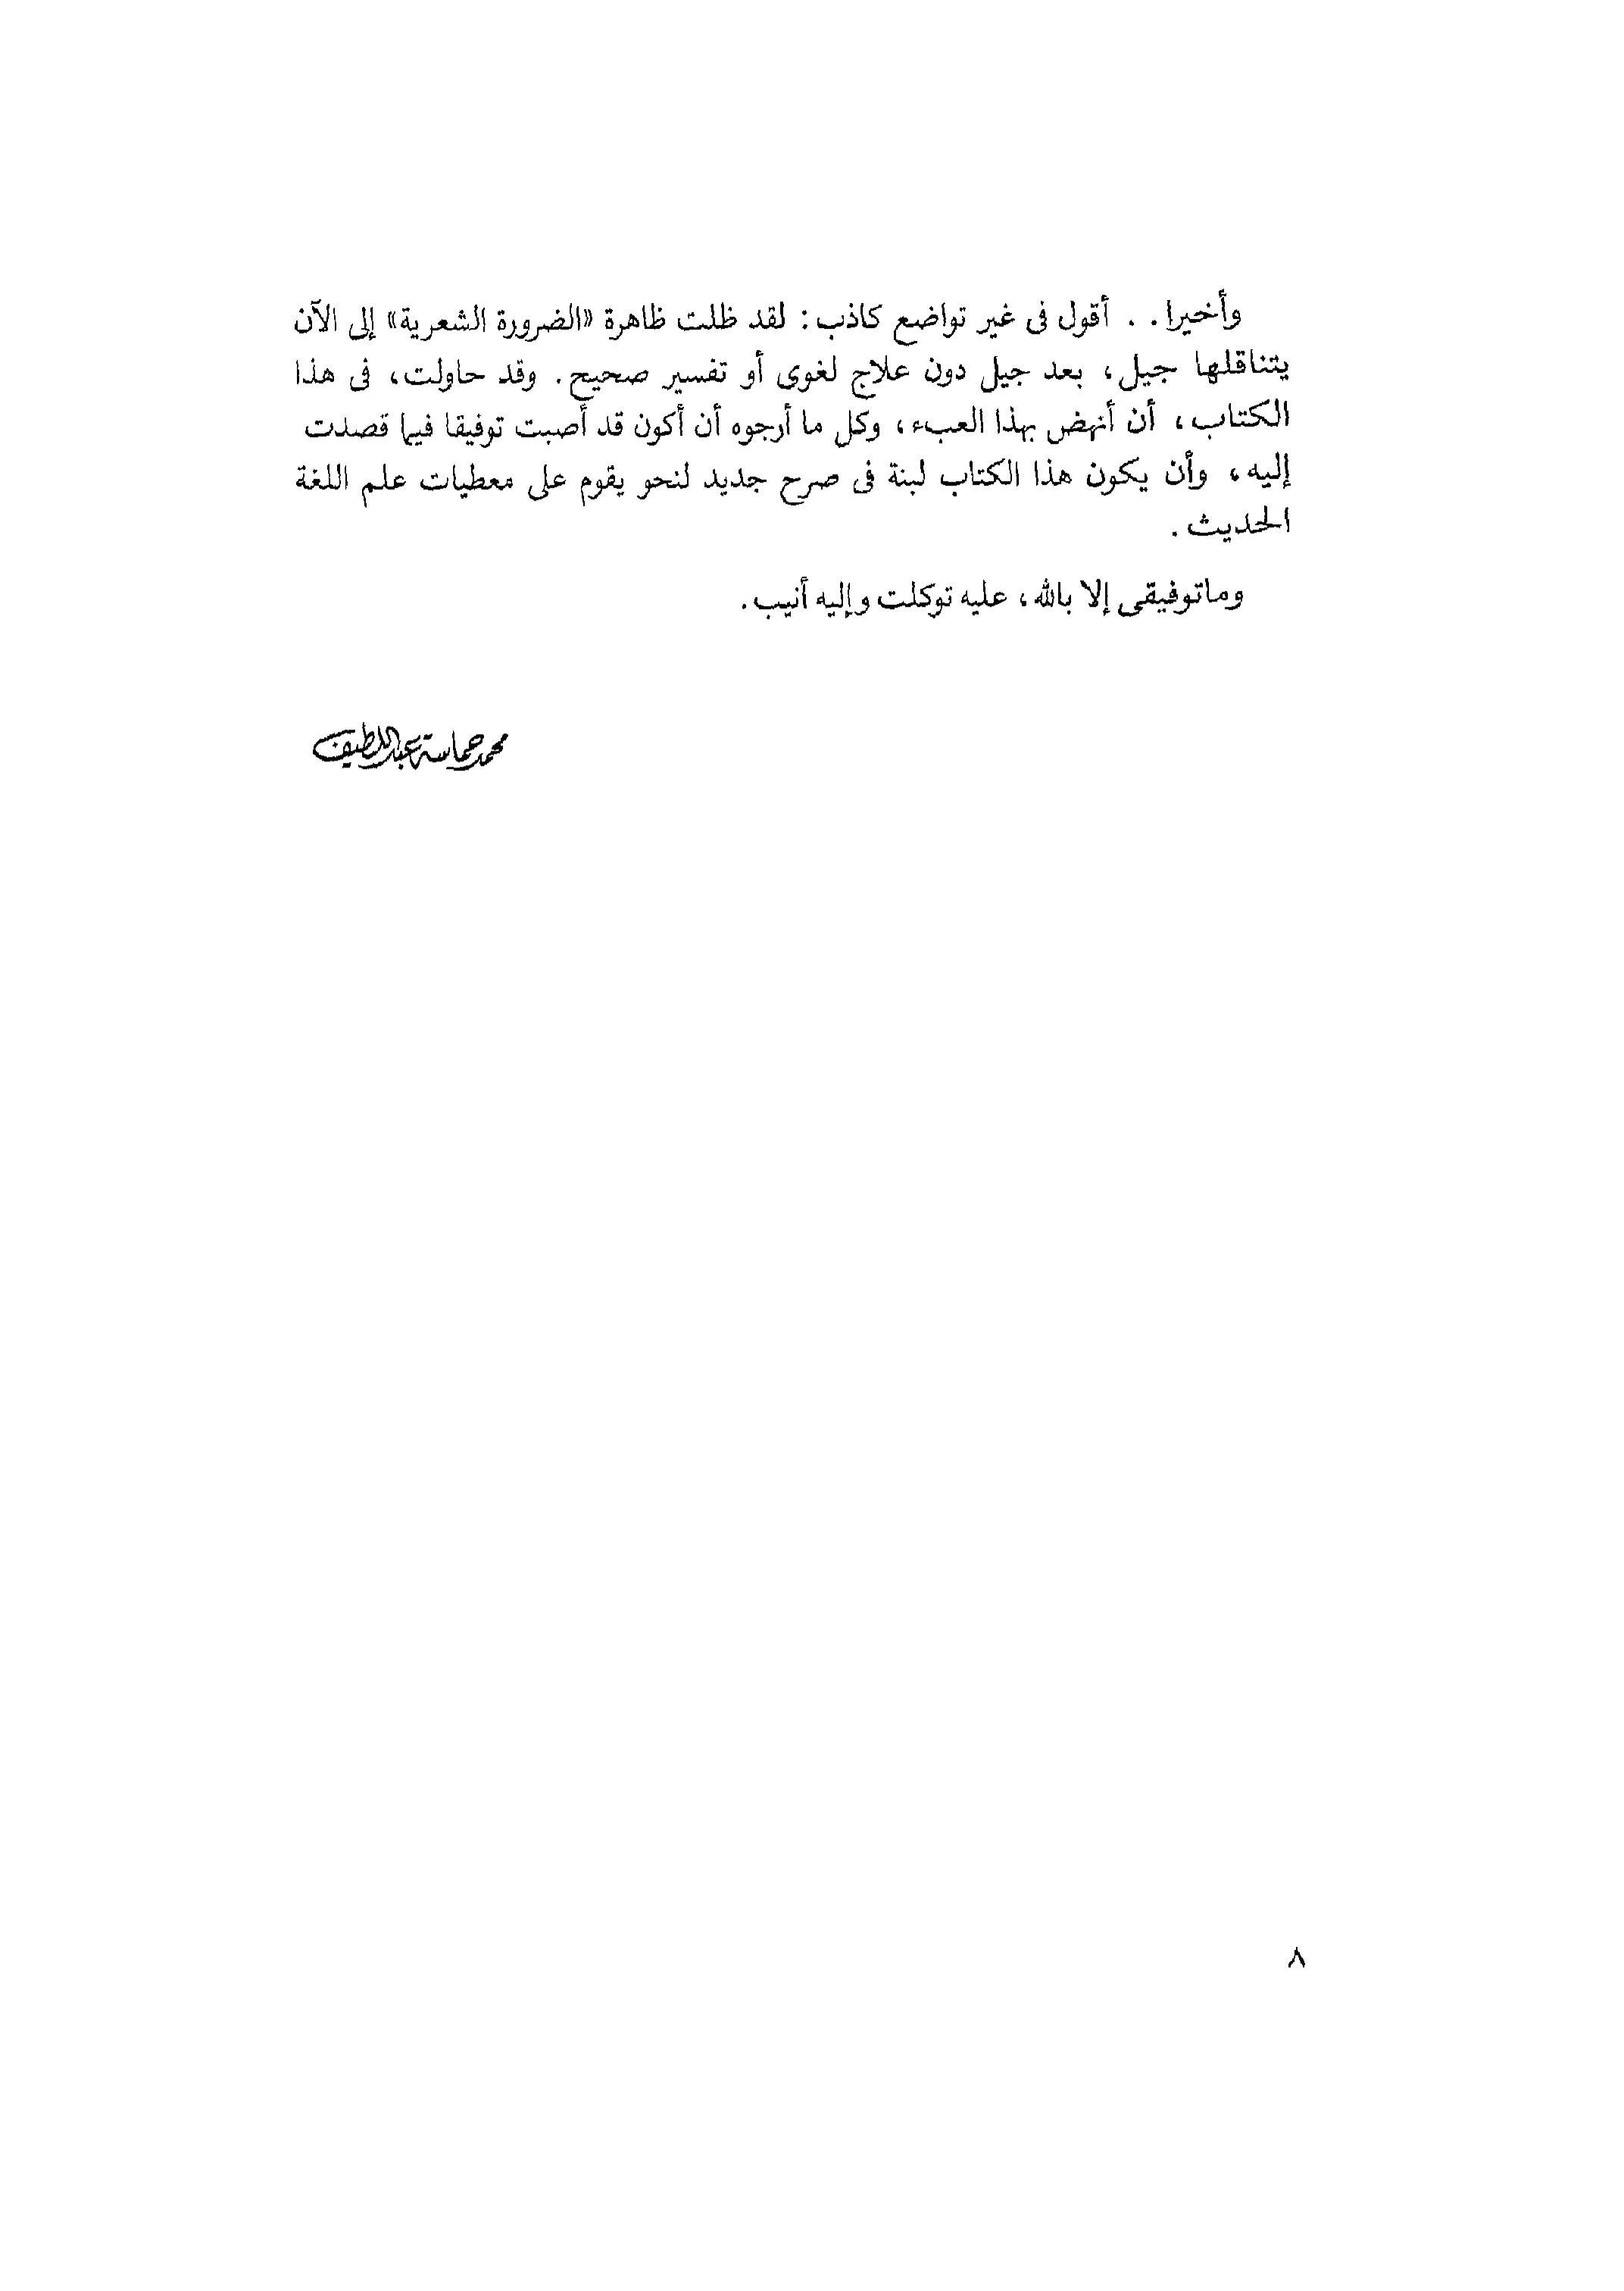 وأخيرا . . أقول فى غير تواضع كاذب : لقد ظلت ظاهرة «الضرورة الشعرية» إلى الآن
يتناقلها جيل ، بعد جيل دون علاج لغوى أو تفسير صحيح . وقد حاولت ، فى هذا
الكتاب ، أن أنهض بهذا العبء ، وكل ما أرجوه أن أكون قد أصبت توفيقا فيما قصدت
إليه ، وأن يكون هذا الكتاب لبنة فى صرح جديد لنحو يقوم على معطيات علم اللغة
الحديث .
وماتوفيقى إلا بالله ، عليه توكلت وإليه أنيب .
محمد حماسة عبد اللطيف
٨